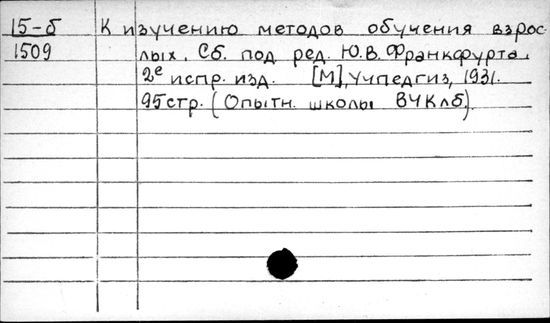 15-б К изучению методов обучения взрос
1509 лых. Сб. под ред. Ю.В. Франкфурта.
2е испр. изд. [М], Учпедгиз, 1931.
95 стр. (Опытн. школы ВЧКлб).